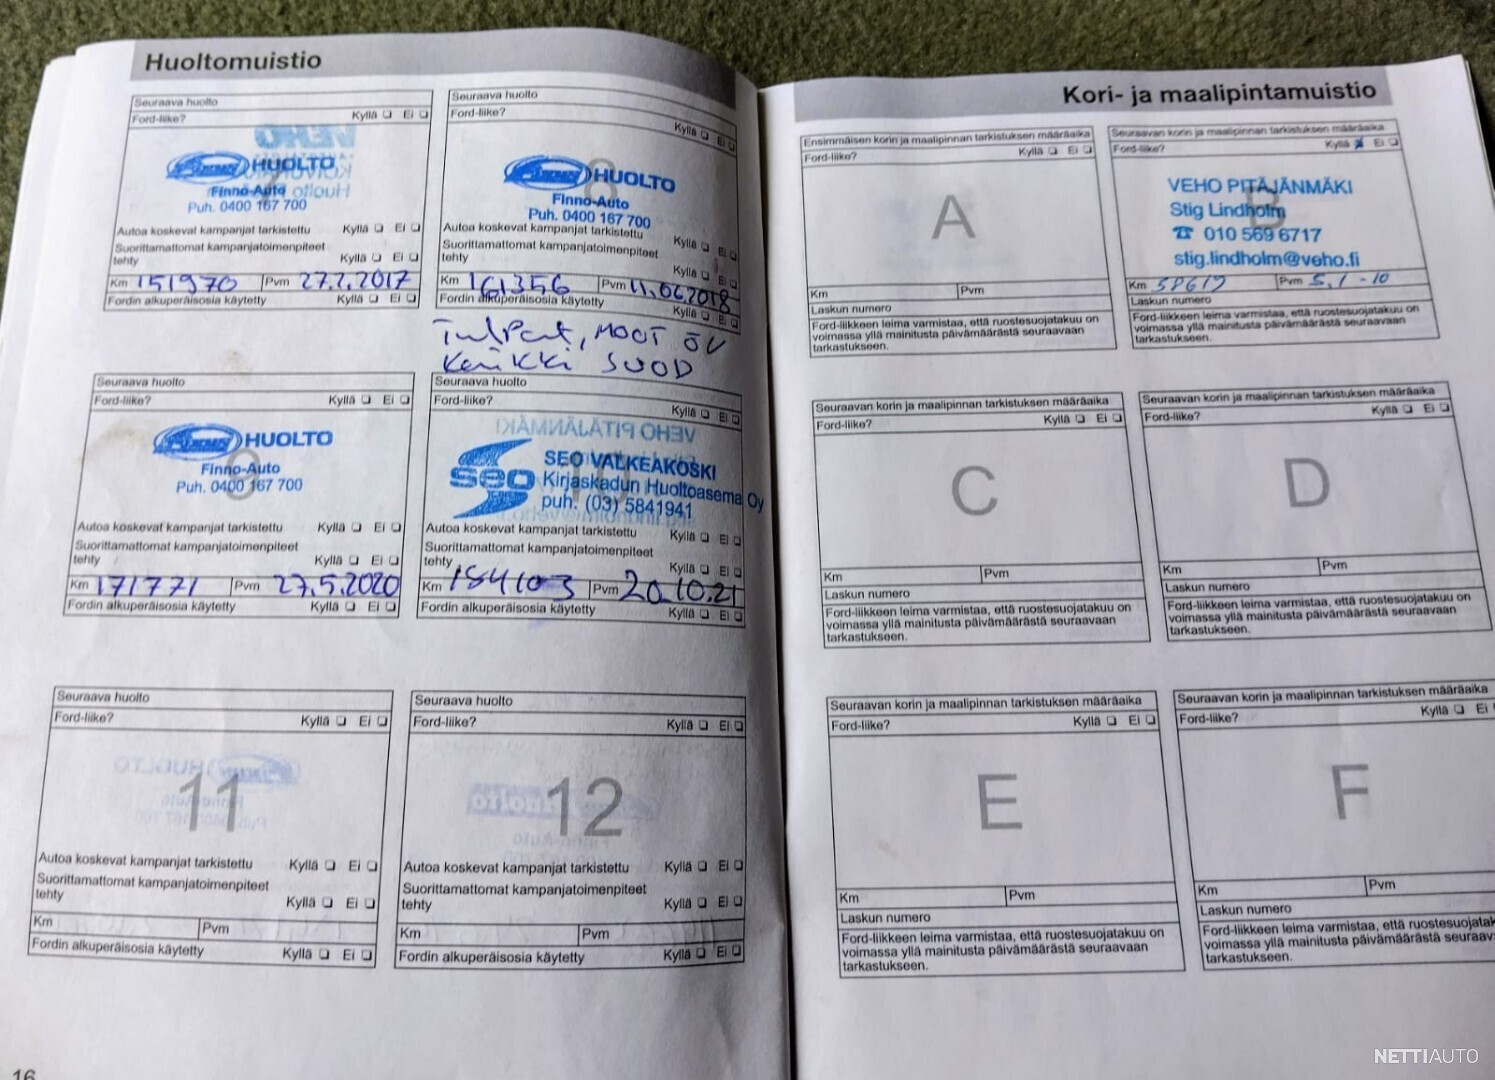 Huoltomuistio
Seuraava huolto
Ford-liike? Kyllä ❏ Ei ❏
HUOLTO
Finno-Auto
Puh. 0400 167 700
Autoa koskevat kampanjat tarkistettu Kyllä ❏ Ei ❏
Suorittamattomat kampanjatoimenpiteet
tehty Kyllä ❏ Ei ❏
Km 151970 Pvm 27.2.2017
Fordin alkuperäisosia käytetty Kyllä ❏ Ei ❏
Seuraava huolto
Ford-liike? Kyllä ❏ Ei ❏
8
HUOLTO
Finno-Auto
Puh. 0400 167 700
Autoa koskevat kampanjat tarkistettu Kyllä ❏ Ei ❏
Suorittamattomat kampanjatoimenpiteet
tehty Kyllä ❏ Ei ❏
Km 161356 Pvm 11.06.2018
Fordin alkuperäisosia käytetty Kyllä ❏ Ei ❏
SUOD
Seuraava huolto
Ford-liike? Kyllä ❏ Ei ❏
HUOLTO
9
Finno-Auto
Puh. 0400 167 700
Autoa koskevat kampanjat tarkistettu Kyllä ❏ Ei ❏
Suorittamattomat kampanjatoimenpiteet
tehty Kyllä ❏ Ei ❏
Km 171771 Pvm 27.5.2020
Fordin alkuperäisosia käytetty Kyllä ❏ Ei ❏
Seuraava huolto
Ford-liike? Kyllä ❏ Ei ❏
10
seo SEO VALKEAKOSKI
Kirjaskadun Huoltoasema Oy
puh. (03) 5841941
Autoa koskevat kampanjat tarkistettu Kyllä ❏ Ei ❏
Suorittamattomat kampanjatoimenpiteet
tehty Kyllä ❏ Ei ❏
Km 184103 Pvm 20.10.21
Fordin alkuperäisosia käytetty Kyllä ❏ Ei ❏
Seuraava huolto
Ford-liike? Kyllä ❏ Ei ❏
11
Autoa koskevat kampanjat tarkistettu Kyllä ❏ Ei ❏
Suorittamattomat kampanjatoimenpiteet
tehty Kyllä ❏ Ei ❏
Km Pvm
Fordin alkuperäisosia käytetty Kyllä ❏ Ei ❏
Seuraava huolto
Ford-liike? Kyllä ❏ Ei ❏
12
Autoa koskevat kampanjat tarkistettu Kyllä ❏ Ei ❏
Suorittamattomat kampanjatoimenpiteet
tehty Kyllä ❏ Ei ❏
Km Pvm
Fordin alkuperäisosia käytetty Kyllä ❏ Ei ❏
16
Kori- ja maalipintamuistio
Ensimmäisen korin ja maalipinnan tarkistuksen määräaika
Ford-liike? Kyllä ❏ Ei ❏
A
Km Pvm
Laskun numero
Ford-liikkeen leima varmistaa, että ruostesuojatakuu on
voimassa yllä mainitusta päivämäärästä seuraavaan
tarkastukseen.
Seuraavan korin ja maalipinnan tarkistuksen määräaika
Ford-liike? Kyllä ☒ Ei ❏
B
VEHO PITÄJÄNMÄKI
Stig Lindholm
☎ 010 569 6717
stig.lindholm@veho.fi
Km 58619 Pvm 5.1-10
Laskun numero
Ford-liikkeen leima varmistaa, että ruostesuojatakuu on
voimassa yllä mainitusta päivämäärästä seuraavaan
tarkastukseen.
Seuraavan korin ja maalipinnan tarkistuksen määräaika
Ford-liike? Kyllä ❏ Ei ❏
C
Km Pvm
Laskun numero
Ford-liikkeen leima varmistaa, että ruostesuojatakuu on
voimassa yllä mainitusta päivämäärästä seuraavaan
tarkastukseen.
Seuraavan korin ja maalipinnan tarkistuksen määräaika
Ford-liike? Kyllä ❏ Ei ❏
D
Km Pvm
Laskun numero
Ford-liikkeen leima varmistaa, että ruostesuojatakuu on
voimassa yllä mainitusta päivämäärästä seuraavaan
tarkastukseen.
Seuraavan korin ja maalipinnan tarkistuksen määräaika
Ford-liike? Kyllä ❏ Ei ❏
E
Km Pvm
Laskun numero
Ford-liikkeen leima varmistaa, että ruostesuojatakuu on
voimassa yllä mainitusta päivämäärästä seuraavaan
tarkastukseen.
Seuraavan korin ja maalipinnan tarkistuksen määräaika
Ford-liike? Kyllä ❏ Ei
F
Km Pvm
Laskun numero
Ford-liikkeen leima varmistaa, että ruostesuojatak
voimassa yllä mainitusta päivämäärästä seuraav
tarkastukseen.
NETTIAUTO